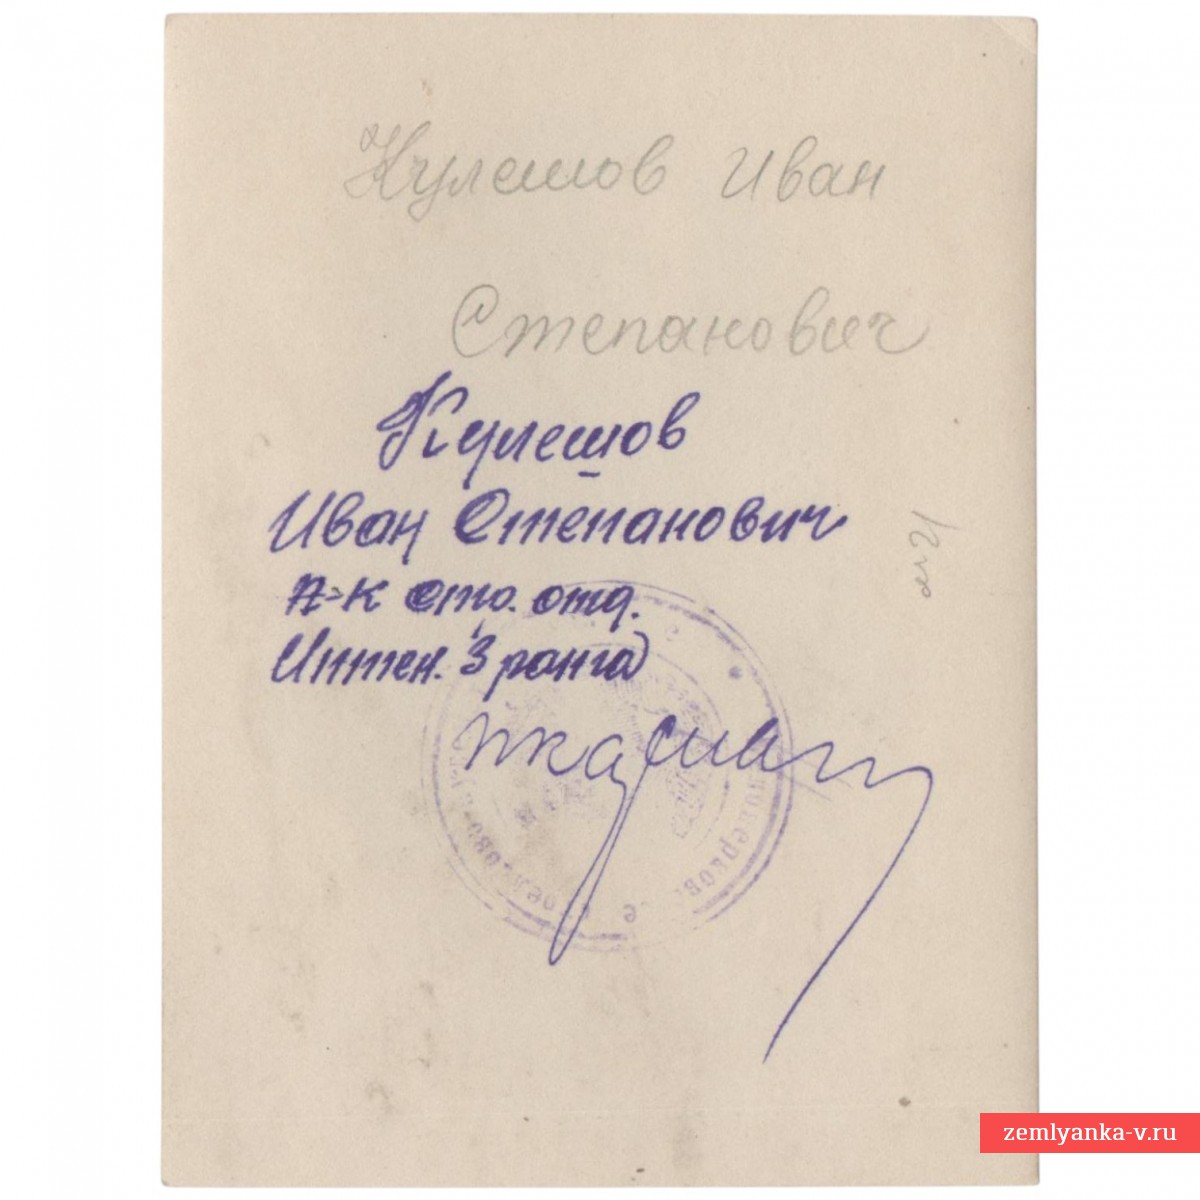 Кулешов Иван
Степанович
Кулешов
Иван Степанович
п-к отд.
Интен. 3 ранга
zemlyanka-v.ru